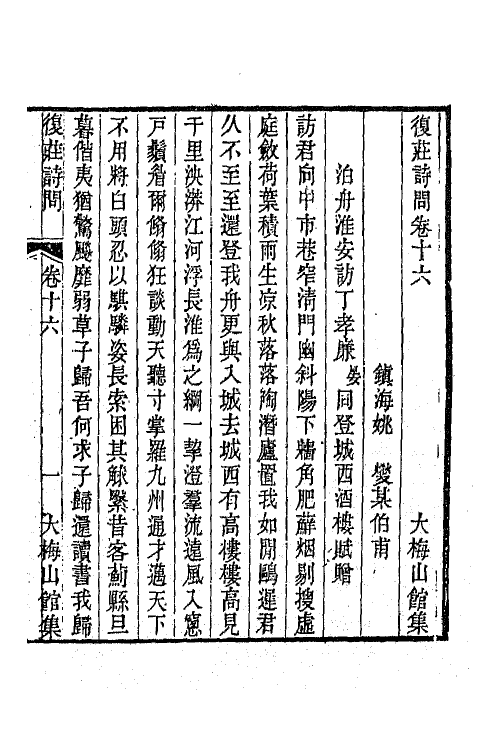 復莊詩問卷十六　大梅山館集
鎮海姚　燮某伯甫
泊舟淮安訪丁孝廉晏同登城西酒樓賦贈
訪君向中市巷窄淸門幽斜陽下牆角肥蘚烟剔搜虛
庭斂荷葉積雨生凉秋落落陶潛廬置我如閒鷗遲君
久不至至還登我舟更與入城去城西有高樓樓高見
千里泱漭江河浮長淮爲之綱一挈澄羣流遠風入窻
戶鬚眉爾翛翛狂談動天聽寸掌羅九州通才邁天下
不用將白頭忍以騏驎姿長索困其觩緊昔客薊縣旦
暮偕夷猶驚飈靡弱草子歸吾何求子歸還讀書我歸
復莊詩問　卷十六　一　大梅山館集